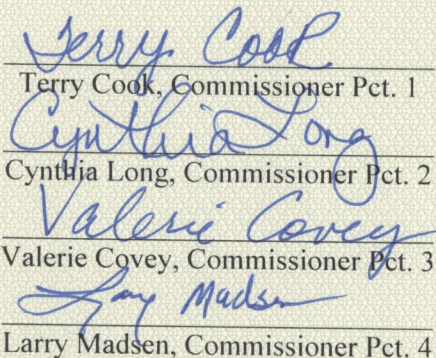 Terry Cook
Terry Cook, Commissioner Pct. 1
Cynthia Long
Cynthia Long, Commissioner Pct. 2
Valerie Covey
Valerie Covey, Commissioner Pct. 3
Larry Madsen
Larry Madsen, Commissioner Pct. 4